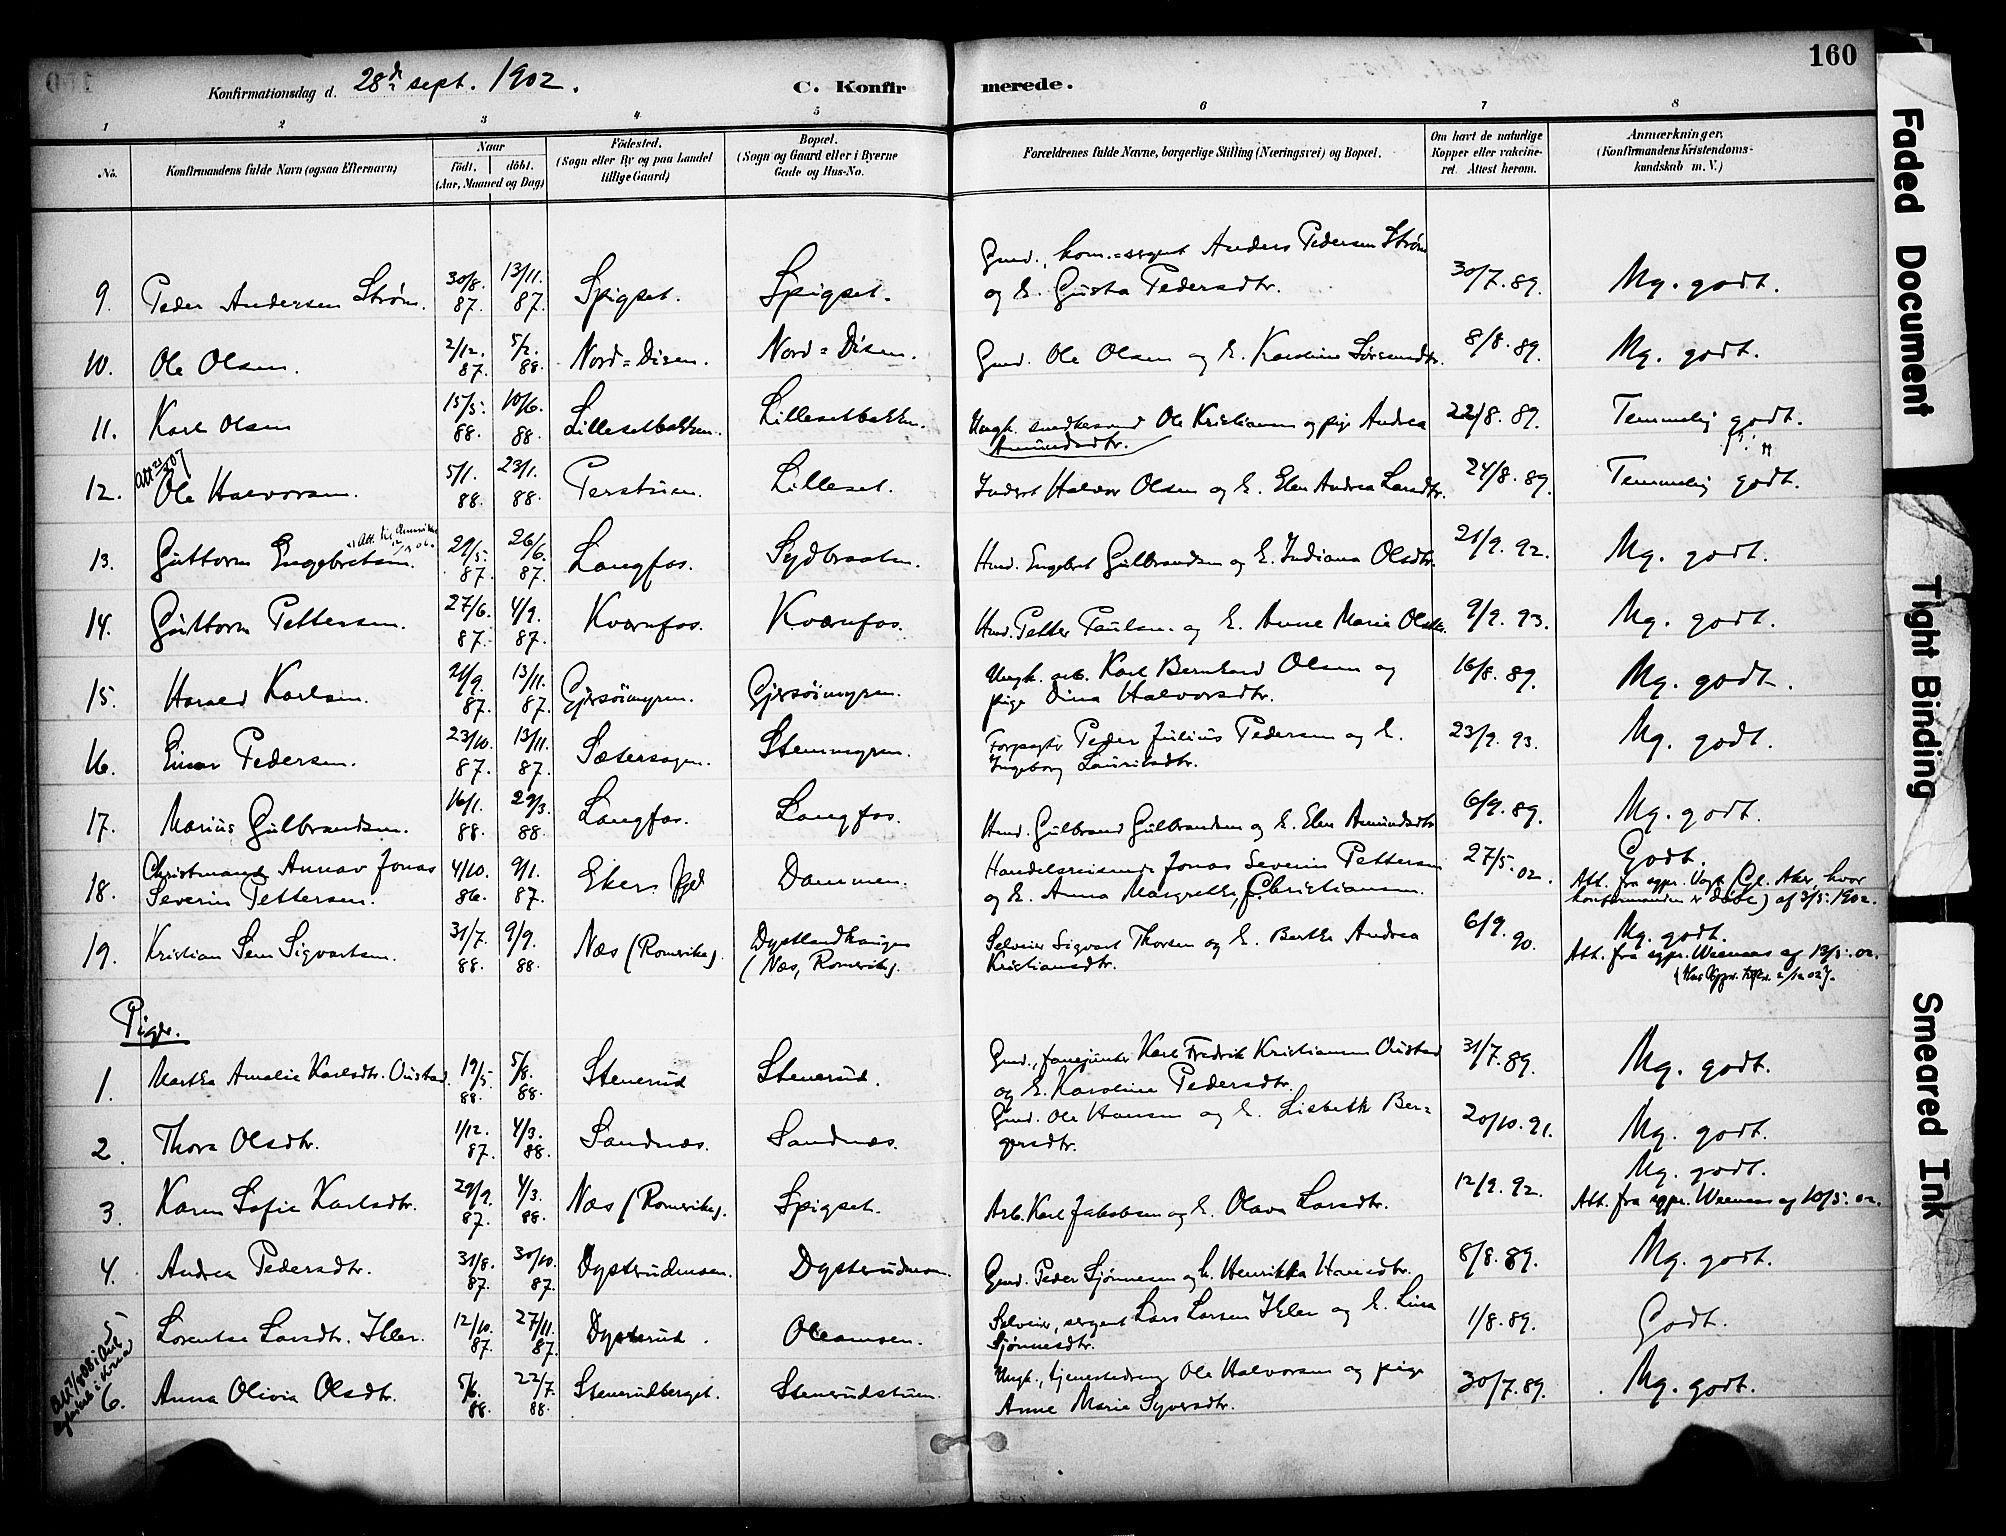 160
Konfirmationsdag d. 28de sept. 1902. C. Konfirmerede.
1 2 3 4 5 6 7 8
No. Konfirmandens fulde Navn (ogsaa Efternavn) Naar født. døbt. (Aar, Maaned og Dag) Fødested. (Sogn eller By og paa Landet tillige Gaard) Bopæl. (Sogn og Gaard eller i Byerne Gade og Hus-No. Forældrenes fulde Navne, borgerlige Stilling (Næringsvei) og Bopæl. Om havt de naturlige Kopper eller vakcineret. Attest herom. Anmærkninger. (Konfirmandens Kristendomskundskab m. V.)
9. Peder Andersen Strøm. 30/8. 87. 13/11. 87. Spigset. Spigset. Gmd., kom.=sergent Anders Pedersen Strøm og E. Gusta Pedersdtr. 30/7. 89. Mg. godt.
10. Ole Olsen. 2/12. 87. 5/2. 88. Nord=Disen. Nord=Disen. Gmd. Ole Olsen og E. Karoline Sørensdtr. 8/8. 89. Mg. godt.
11. Karl Olsen 15/5. 88. 10/6. 88. Lillesetbakken. Lillesetbakken. Ungk. Ole Kristiansen og pige Andrea Amundsdtr. 22/8. 89. Temmelig godt.
12. Ole Halvorsen. 5/1. 88. 23/1. 88. Perstuen. Lilleset. Inderst Halvor Olsen og E. Elen Andrea Larsdtr. 24/8. 89. Temmelig godt.
13. Guttorm Engebretsen. Att. til Amerika 29/5. 87. 26/6. 87. Langfos. Sydbraaten. Hmd. Engebret Gulbrandsen og E. Indiana Olsdtr. 21/9. 92. Mg. godt.
14. Guttorm Pettersen. 27/6. 87. 4/9. 87. Kværnfos. Kværnfos. Hmd. Petter Paulsen og E. Anne Marie Olsdtr. 9/9. 93. Mg. godt.
15. Harald Karlsen. 21/9. 87. 13/11. 87. Gjersøimyren. Gjersøimyren. Ungk. arb. Karl Bernhard Olsen og pige Dina Halvorsdtr. 16/8. 89. Mg. godt.
16. Einar Pedersen. 23/10. 87. 13/11. 87. Sætersagen. Stemmyren. Forpagter Peder Julius Pedersen og E. Ingeborg Lauritsdtr. 23/9. 93. Mg. godt.
17. Marius Gulbrandsen. 16/1. 88. 29/3. 88. Langfos. Langfos. Hmd. Gulbrand Gulbrandsen og E. Elen Amundsdtr. 6/9. 89. Mg. godt.
18. Annar Jonas Severin Pettersen. 4/10. 86. 9/1. 87. Ekers Dammen. Handelsreisende Jonas Severin Pettersen og E. Anna Margrethe, f. Christiansen. 27/5. 02. Godt. Att. fra sgpr. Vogt (Gl. Aker, hvor konfirmanden er døbt) af 3/5. 1902.
19. Kristian Sem Sigvartsen. 31/7. 88. 9/9. 88. Næs (Romerike). Dystlandhaugen (Næs, Romerike). Selveier Sigvart Thorsen og E. Berthe Andrea Kristiansdtr. 6/9. 90. Mg. godt. Att. fra sgpr. Weenaas af 13/5. 02.
Piger.
1. Martha Amalie Karlsdtr. Oustad. 19/5. 88. 5/8. 88. Stenerud Stenerud. Gmd., fanejunker Karl Fredrik Kristiansen Oustad og E. Karoline Pedersdtr. 31/7. 89. Mg. godt.
2. Thora Olsdtr. 1/12. 87. 4/3. 88. Sandnæs. Sandnæs. Gmd. Ole Hansen og E. Lisbeth Bergersdtr. 20/10. 91. Mg. godt.
3. Karen Sofie Karlsdtr. 29/9. 87. 4/3. 88. Næs (Romerike). Spigset. Arb. Karl Jakobsen og E. Olava Larsdtr. 12/9. 92. Mg. godt. Att. fra sgpr. Weenaas af 10/5. 02.
4. Andrea Pedersdtr. 31/8. 87. 30/10. 87. Dysterudmoen. Dysterudmoen. Gmd. Peder Sjønnesen og E. Henrikka Hansdtr. 8/8. 89. Mg. godt.
5 Lorentse Larsdtr. Ihler. 12/10. 87. 27/11. 87. Dysterud. Oleamoen. Selveier, sergent Lars Larsen Ihler og E. Lina Sjønnesdtr. 1/8. 89. Godt.
6. Anna Olivia Olsdtr. 5/6. 88. 22/7. 88. Stenerudberget. Stenerudstuen. Ungk., tjenestedreng Ole Halvorsen og pige Anne Marie Syversdtr. 30/7. 89. Mg. godt.
Faded Document
Tight Binding
Smeared Ink